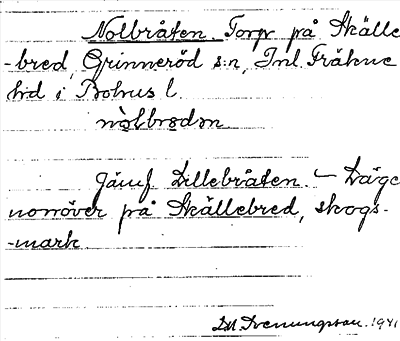 Nolbråten. Torp på Skälle
-bred, Grinneröd s:n, Inl. Fräkne
hd i Bohus l.
nòlbrodən
Jämf Lillebråten. – Läge
norröver på Skällebred, skogs-
-mark.
1941